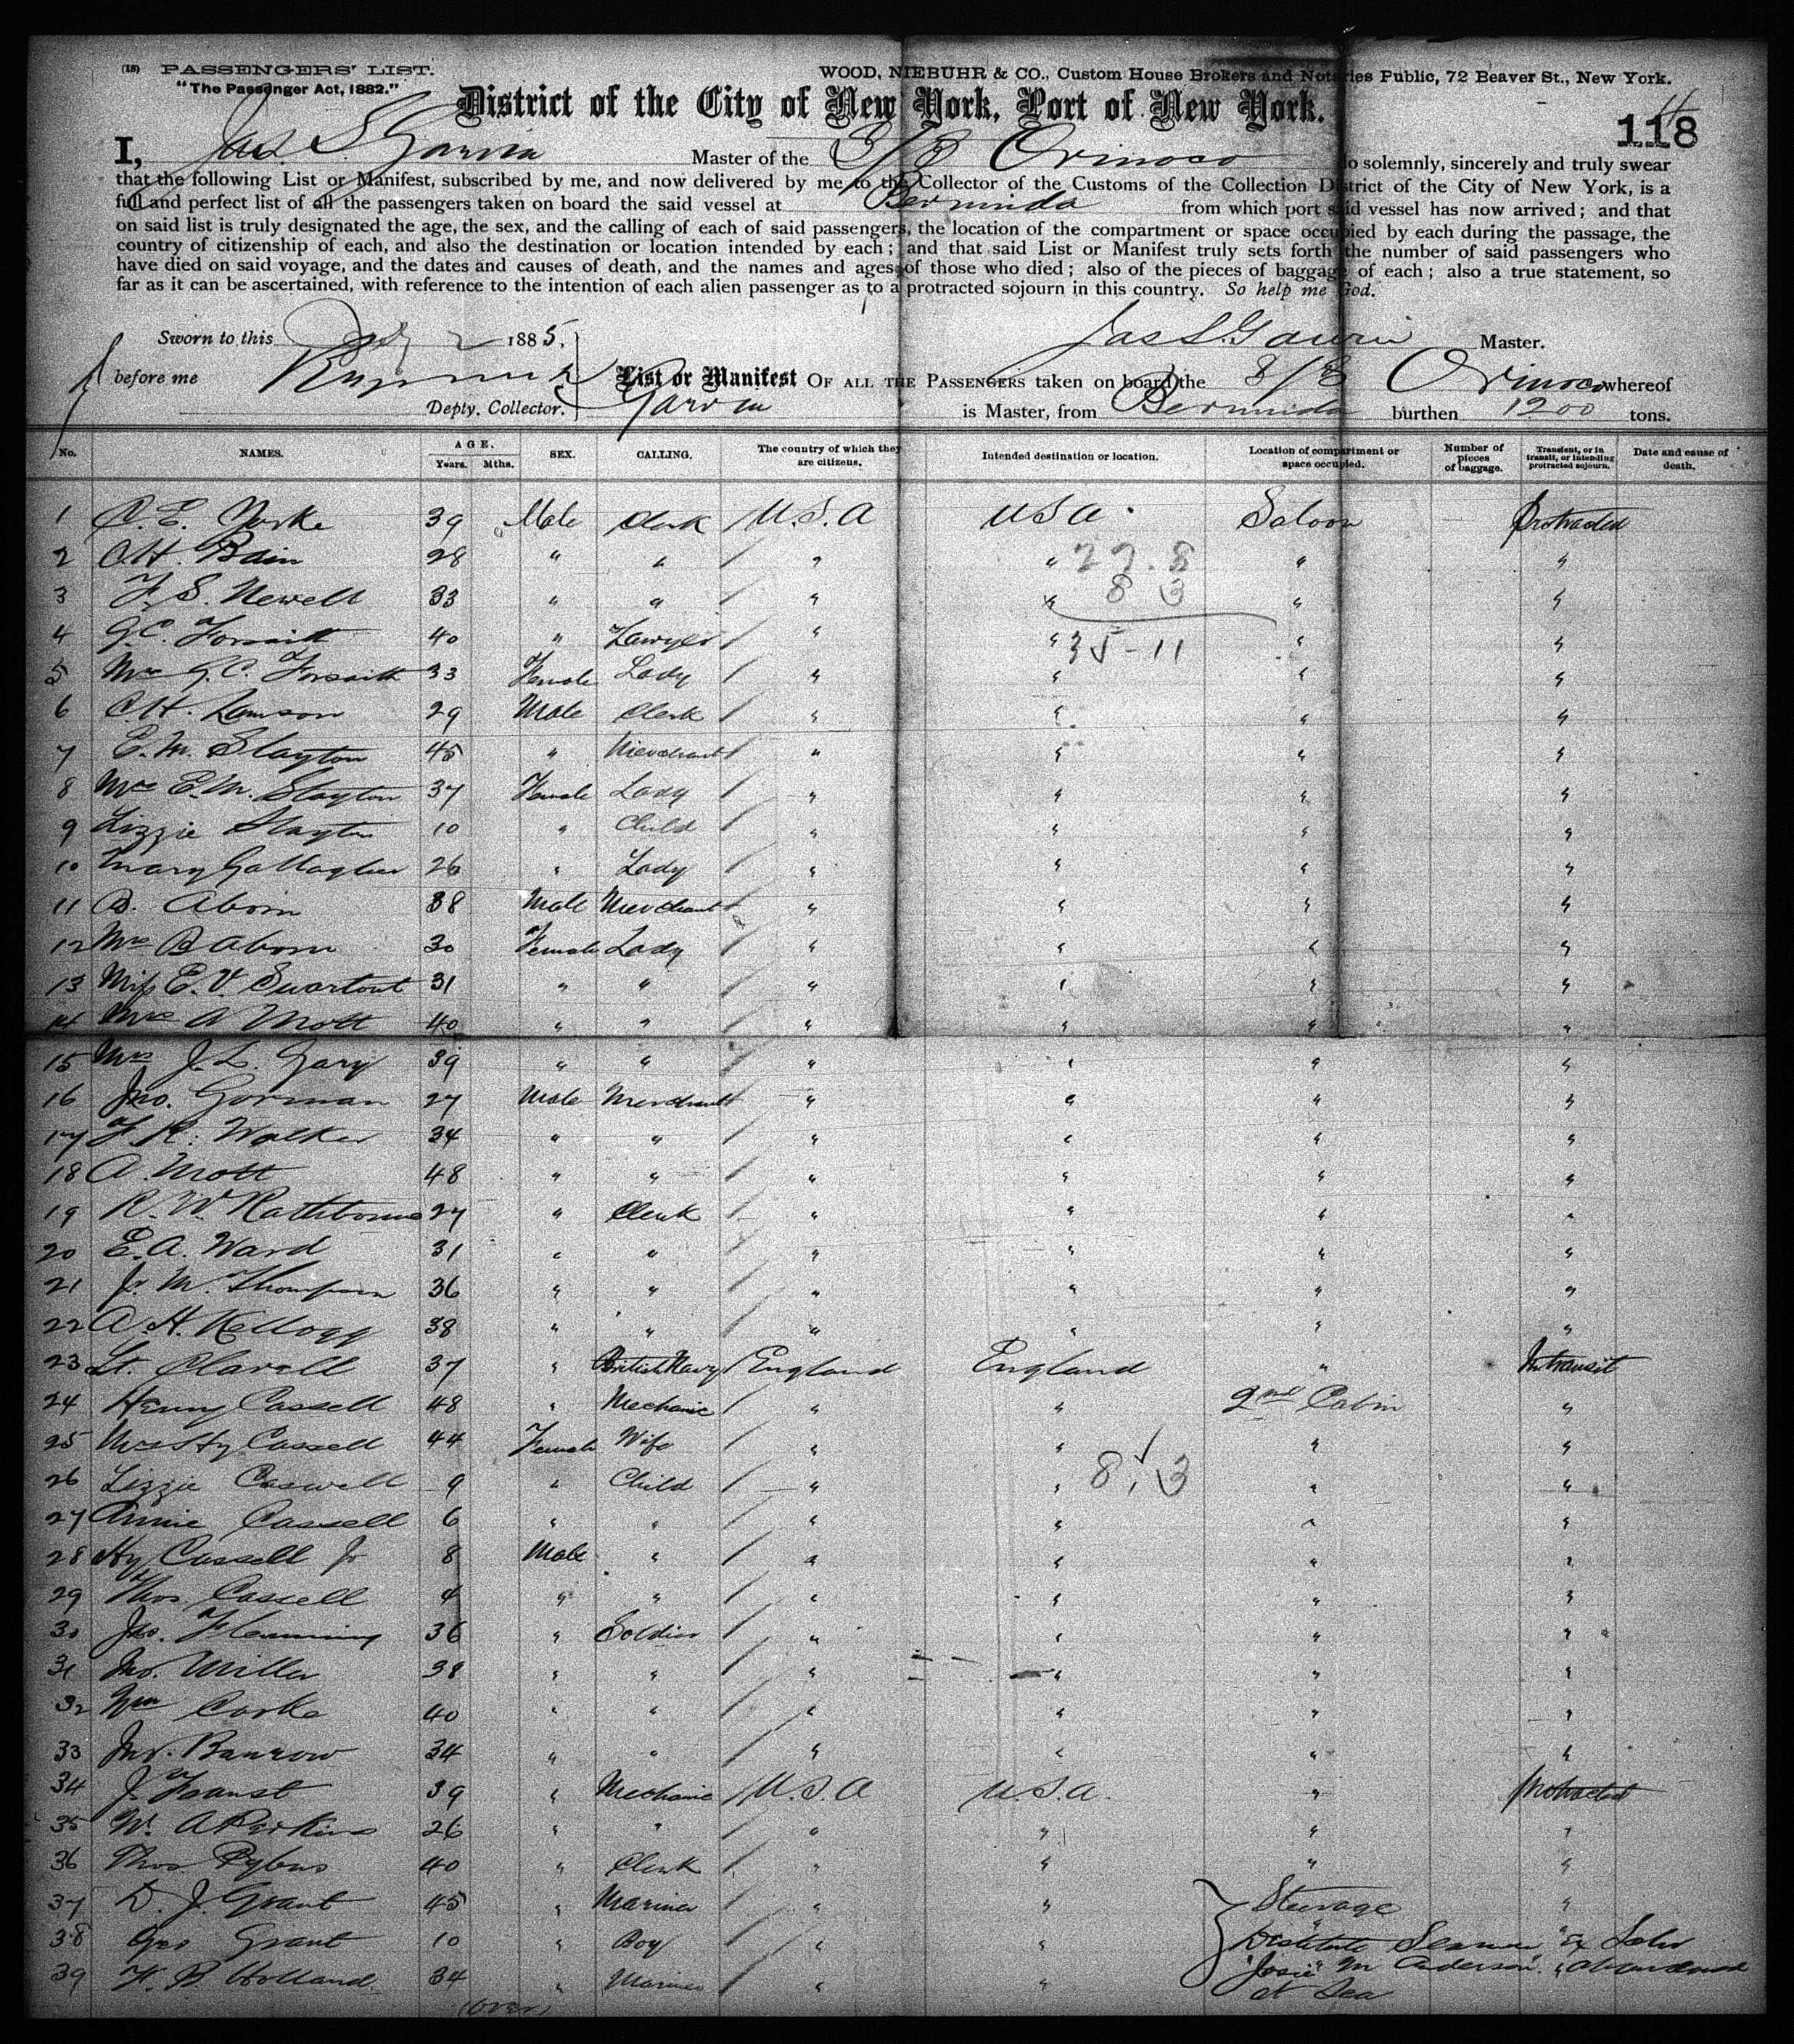 (18) PASSENGERS' LIST.
"The Passenger Act, 1882."
WOOD, NIEBUHR & CO., Custom House Brokers and Notaries Public, 72 Beaver St., New York.
District of the City of New York, Port of New York.
118
I, Jas. S. Garvin Master of the S/S Orinoco do solemnly, sincerely and truly swear
that the following List or Manifest, subscribed by me, and now delivered by me to the Collector of the Customs of the Collection District of the City of New York, is a
full and perfect list of all the passengers taken on board the said vessel at Bermuda from which port said vessel has now arrived; and that
on said list is truly designated the age, the sex, and the calling of each of said passengers, the location of the compartment or space occupied by each during the passage, the
country of citizenship of each, and also the destination or location intended by each; and that said List or Manifest truly sets forth the number of said passengers who
have died on said voyage, and the dates and causes of death, and the names and ages of those who died; also of the pieces of baggage of each; also a true statement, so
far as it can be ascertained, with reference to the intention of each alien passenger as to a protracted sojourn in this country. So help me God.
Sworn to this 2 1885, Jas. S. Garvin Master.
before me List or Manifest OF ALL THE PASSENGERS taken on board the S/S Orinoco whereof
Depty. Collector. Garvin is Master, from Bermuda burthen 1200 tons.
No. NAMES. AGE. Years. Mths. SEX. CALLING. The country of which they are citizens. Intended destination or location. Location of compartment or space occupied. Number of pieces of baggage. Transient, or in transit, or intending protracted sojourn. Date and cause of death.
1 C. E. Yorke 39 Male Clerk U.S.A U S A. Saloon Protracted
2 C.H. Bain 28 " " " " 27.8 " "
3 F. S. Newell 33 " " " " 8 3 " "
4 G.C. Forsaith 40 " Lawyer " " 35-11 " "
5 Mrs G. C. Forsaith 33 Female Lady " " " "
6 C.H. Lamson 29 Male Clerk " " " "
7 E. M. Slayton 45 " Merchant " " " "
8 Mrs E. M. Slayton 37 Female Lady " " " "
9 Lizzie Slayton 10 " Child " " " "
10 Mary Gallagher 26 " Lady " " " "
11 B. Aborn 38 Male Merchant " " " "
12 Mrs B Aborn 30 Female Lady " " " "
13 Miss E. V. Swartout 31 " " " " " "
14 Mrs A Mott 40 " " " " " "
15 Mrs J. L. Gary 39 " " " " " "
16 Jno. Gorman 27 Male Merchant " " " "
17 F. R. Walker 34 " " " " " "
18 A. Mott 48 " " " " " "
19 R. W. Rathborne 27 " Clerk " " " "
20 E. A. Ward 31 " " " " " "
21 J. M. Thompson 36 " " " " " "
22 A. H. Kellogg 38 " " " " " "
23 Lt. Clavell 37 " British Navy England England " In transit
24 Henry Cassell 48 " Mechanic " " 2nd Cabin "
25 Mrs Hy Cassell 44 Female Wife " " " "
26 Lizzie Caswell 9 " Child " " 8 3 " "
27 Annie Cassell 6 " " " " " "
28 Hy Cassell Jr 8 Male " " " " "
29 Thos. Cassell 4 " " " " " "
30 Jno. Flemming 36 " Soldier " " " "
31 Jno. Miller 38 " " " " " "
32 Wm Corke 40 " " " " " "
33 Jno. Barrow 34 " " " " " "
34 J. Faunst 39 " Mechanic U.S.A U.S.A. " Protracted
35 W. A Perkins 26 " " " " " "
36 Thos Pybus 40 " Clerk " " " "
37 D. J. Grant 45 " Mariner " " Steerage "
38 Geo Grant 10 " Boy " " Destitute Seamen ex Schr
39 F. B. Holland 34 " Mariner " " "Josie M Anderson" abandoned
at Sea
(over)